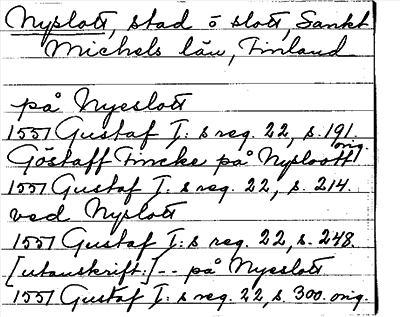 Nyslott, stad o slott, Sankt
Michels län, Finland
på Nyeslott
1551 Gustaf I: s reg. 22, s. 191.
orig.
Göstaff Fincke på Nysloott
1551 Gustaf I: s reg. 22, s. 214.
ved Nyslott
1551 Gustaf I: s reg. 22, s. 248.
[utanskrift:] -- på Nyeslott
1551 Gustaf I: s reg. 22, s. 300. orig.